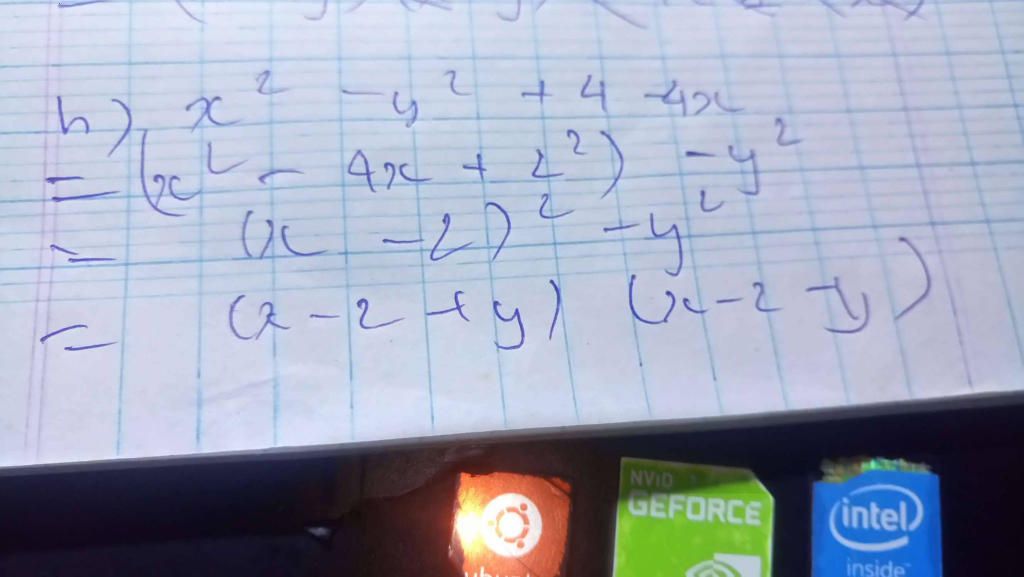 h) x² - y² + 4 - 4x
= (x² - 4x + 2²) - y²
= (x - 2)² - y²
= (x - 2 + y) (x - 2 - y)
NVIDIA
GEFORCE
intel
inside
ubuntu